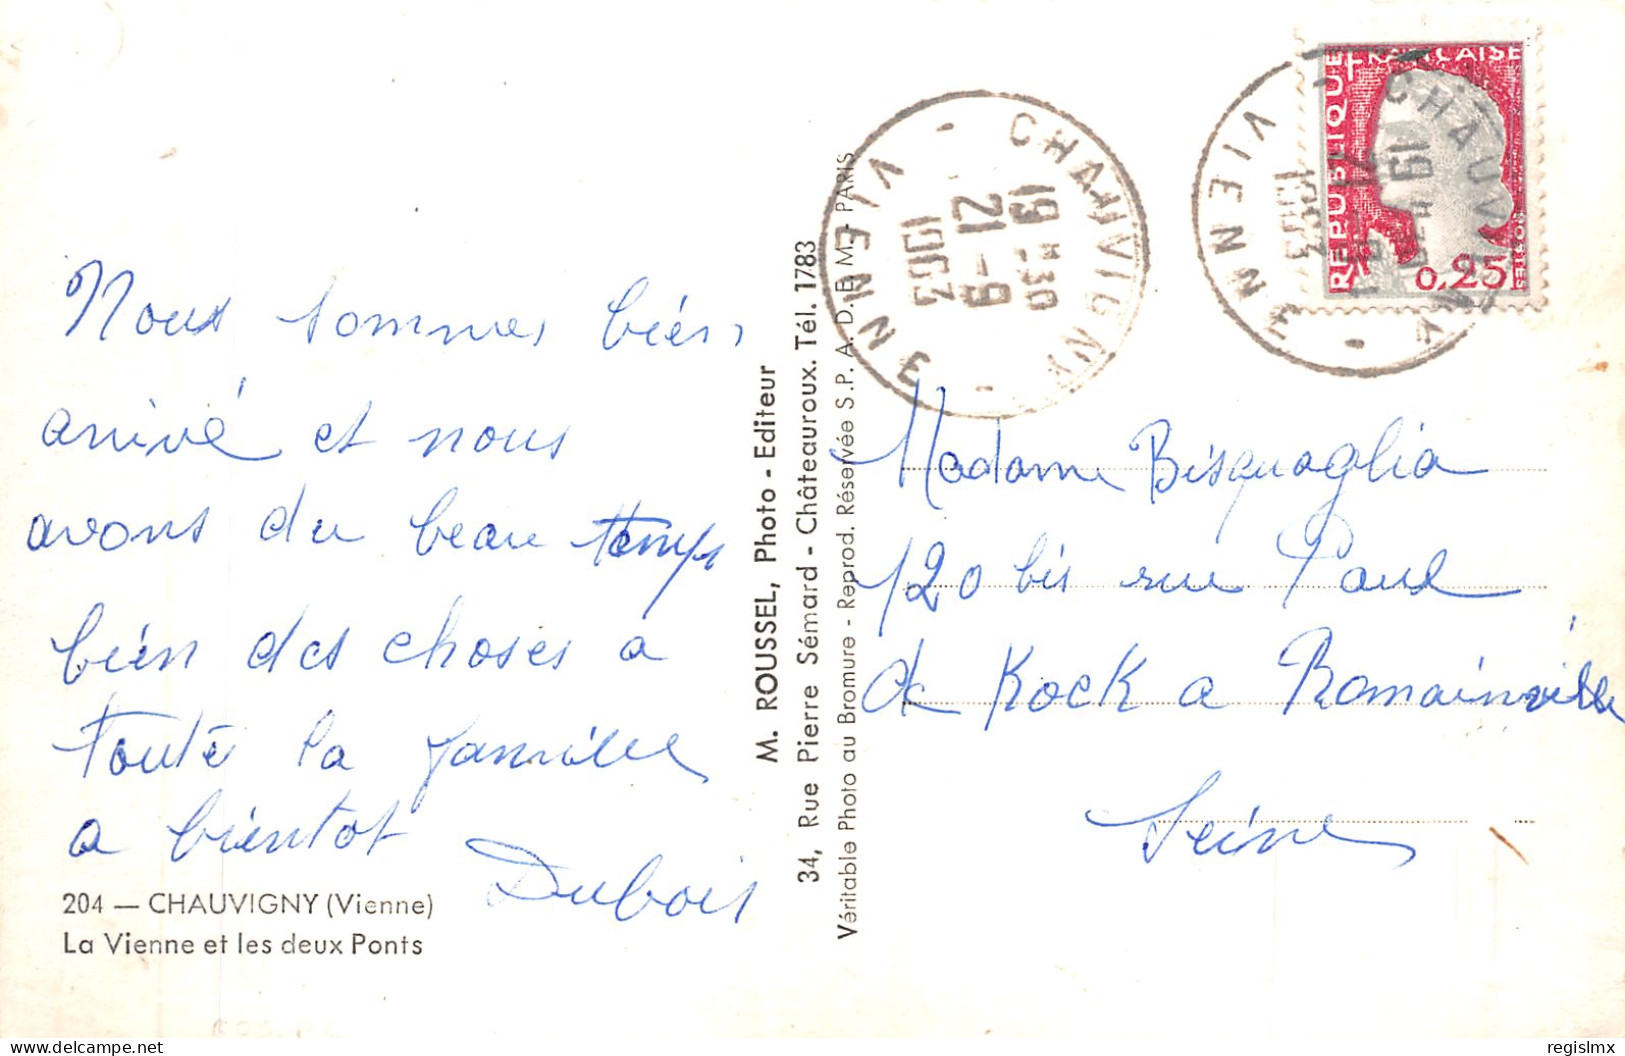 Nous sommes bien
arrivé et nous
avons du beau temps
bien des choses a
toute la famille
a bientot
Dubois
204 — CHAUVIGNY (Vienne)
La Vienne et les deux Ponts
M. ROUSSEL, Photo - Editeur
34, Rue Pierre Sémard - Châteauroux. Tél. 1783
Véritable Photo au Bromure - Reprod. Réservée S.P.A.D.E.M. - PARIS
CHAUVIGNY
19 H 30
21 - 9
1963
VIENNE
REPUBLIQUE FRANÇAISE
0,25
CHAUVIGNY
VIENNE
Madame Bisquaglia
120 bis rue Paul
de Kock a Romainville
Seine
www.delcampe.net
regislmx